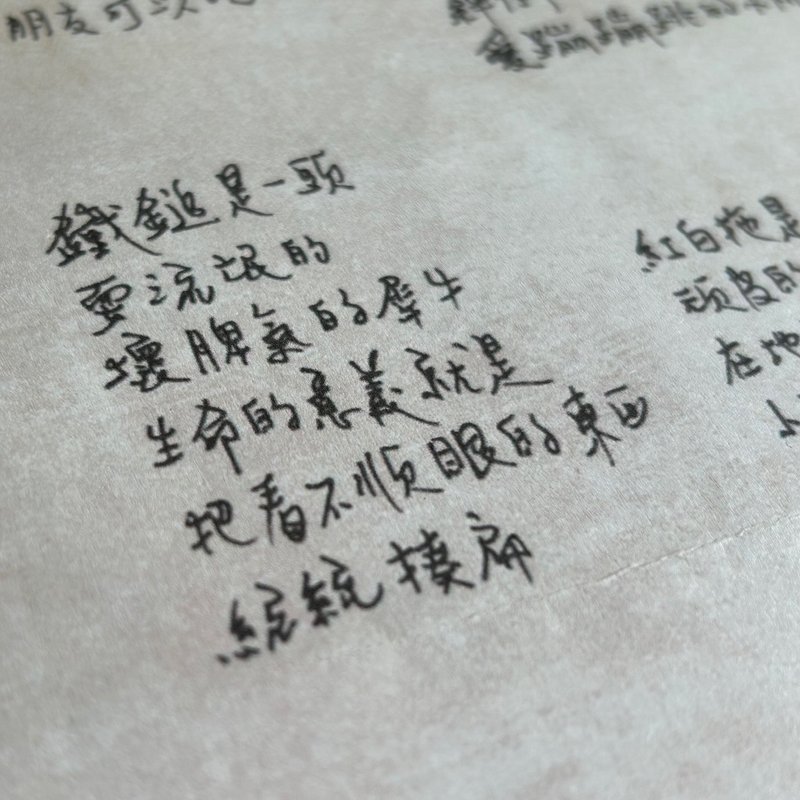 朋友可以
愛蹦蹦跳的
鐵鎚是一頭
耍流氓的
壞脾氣的犀牛
生命的意義就是
把看不順眼的東西
統統揍扁
紅白拖是
頑皮的
在地
小